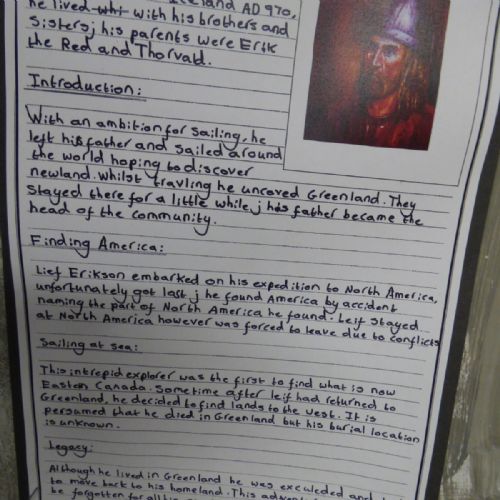 Iceland AD 970,
he lived whi with his brothers and
sisters; his parents were Erik
the Red and Thorvald.
Introduction:
With an ambition for sailing, he
left his father and sailed around
the world hoping to discover
newland. Whilst travling he uncaved Greenland. They
stayed there for a little while; his father became the
head of the community.
Finding America:
Lief Erikson embarked on his expedition to North America,
unfortunately got last; he found America by accident
naming the part of North America he found. Leif stayed
at North America however was forced to leave due to conflicts
Sailing at sea:
This intrepid explorer was the first to find what is now
Eastan Canada. Sometime after leif had returned to
Greenland, he decided to find lands to the vest. It is
persumed that he died in Greenland but his burial location
is unknown.
Legacy:
Although he lived in Greenland he was exculeded and
to move back to his homeland. This
be forgotten for all his